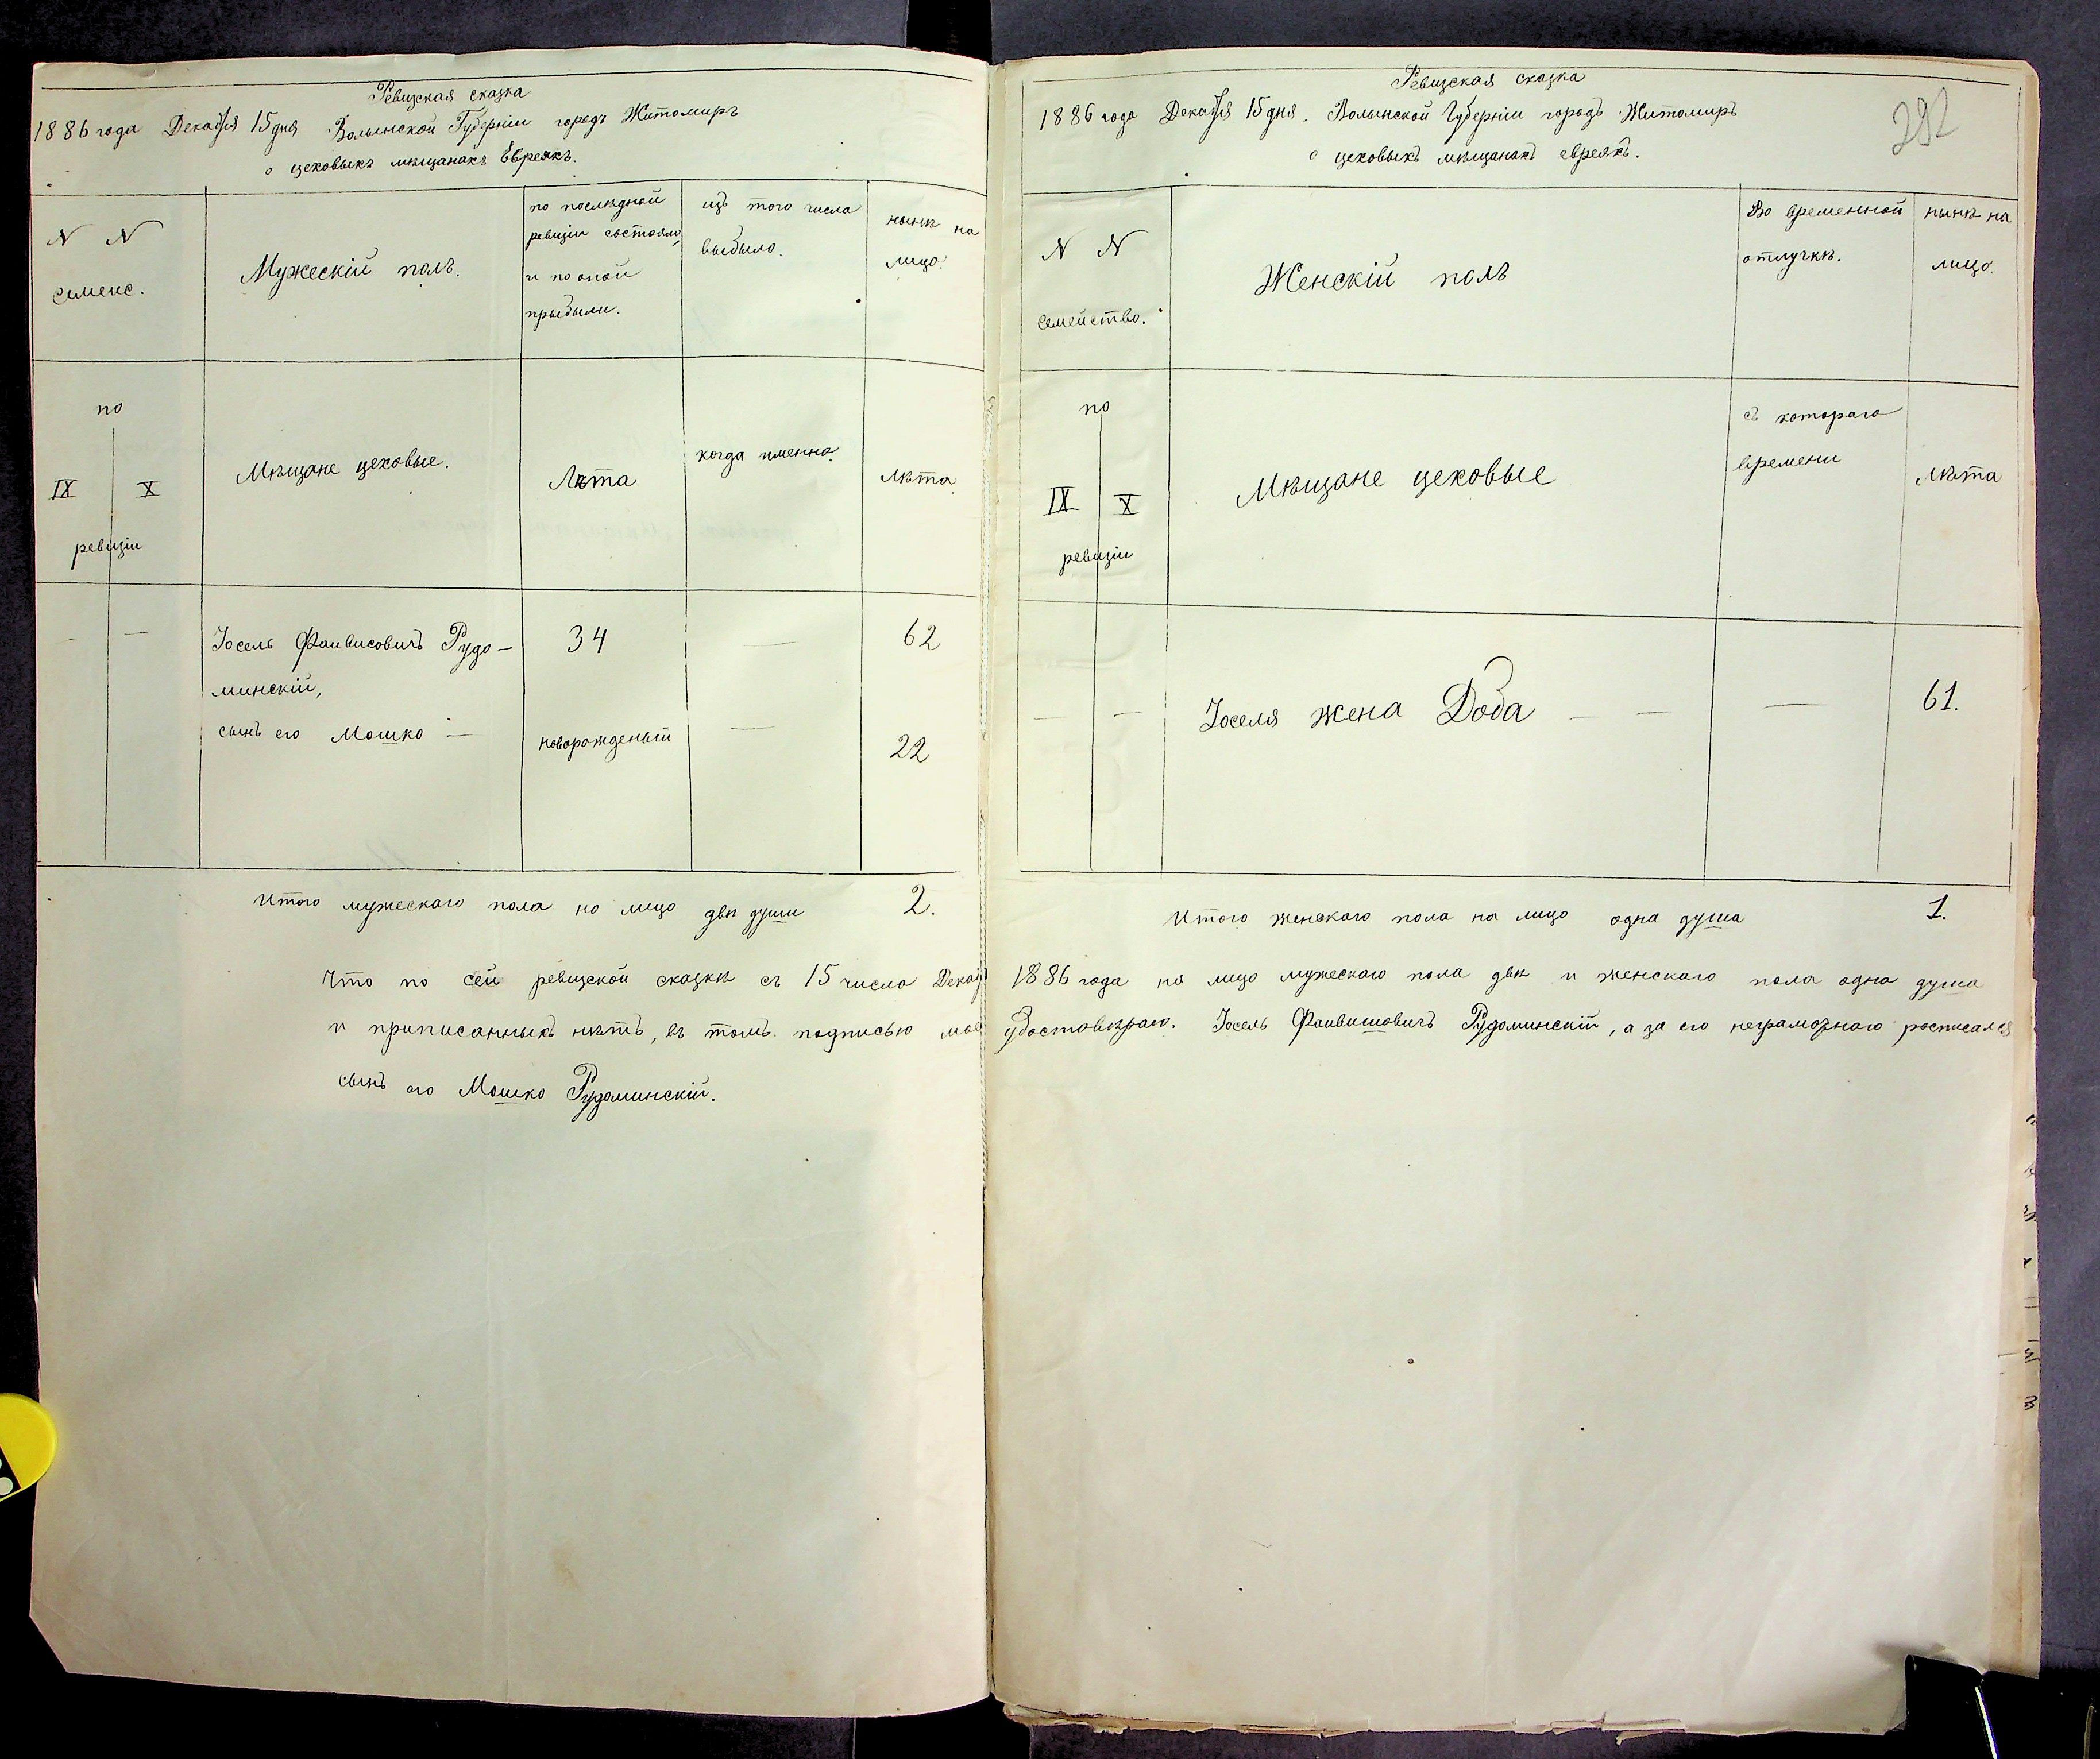 Ревизская сказка
1886 года Декабря 15 дня Волынской Губерніи городъ Житомиръ
о цеховыхъ мѣщанахъ Евреяхъ.
N N
семейс.
Мужескій полъ.
по послѣдней
ревизіи состояло,
и по оной
прыбыли.
изъ того числа
выбыло.
нынѣ на
лицо.
по
IX X
ревизіи
Мѣщане цеховые.
Лѣта
когда именно.
лѣта.
— —
Іосель Фаивисовичъ Рудо-
минскій,
34 — 62
сынъ его Мошко —
новорожденый — 22
Итого мужескаго пола но лицо двѣ души 2.
Что по сей ревизской сказкѣ съ 15 числа Декаб
и приписанныхъ нѣтъ, въ томъ подписью мое
сынъ его Мошко Рудоминскій.
Ревизская сказка
1886 года Декабря 15 дня. Волынской Губерніи городъ Житомиръ
о цеховыхъ мѣщанахъ евреяхъ.
292
N N
Семейство.
Женскій полъ
Во временной
отлучкѣ.
нынѣ на
лицо.
по
IX X
ревизіи
Мѣщане цеховые
съ котораго
времени
Лѣта
— — Іоселя жена Доба — — — 61.
Итого женскаго пола на лицо одна душа 1.
1886 года на лицо мужескаго пола двѣ и женскаго пола одна душа
удостовѣраю. Іосель Фаивишовичъ Рудоминскій, а за его неграмотнаго росписался